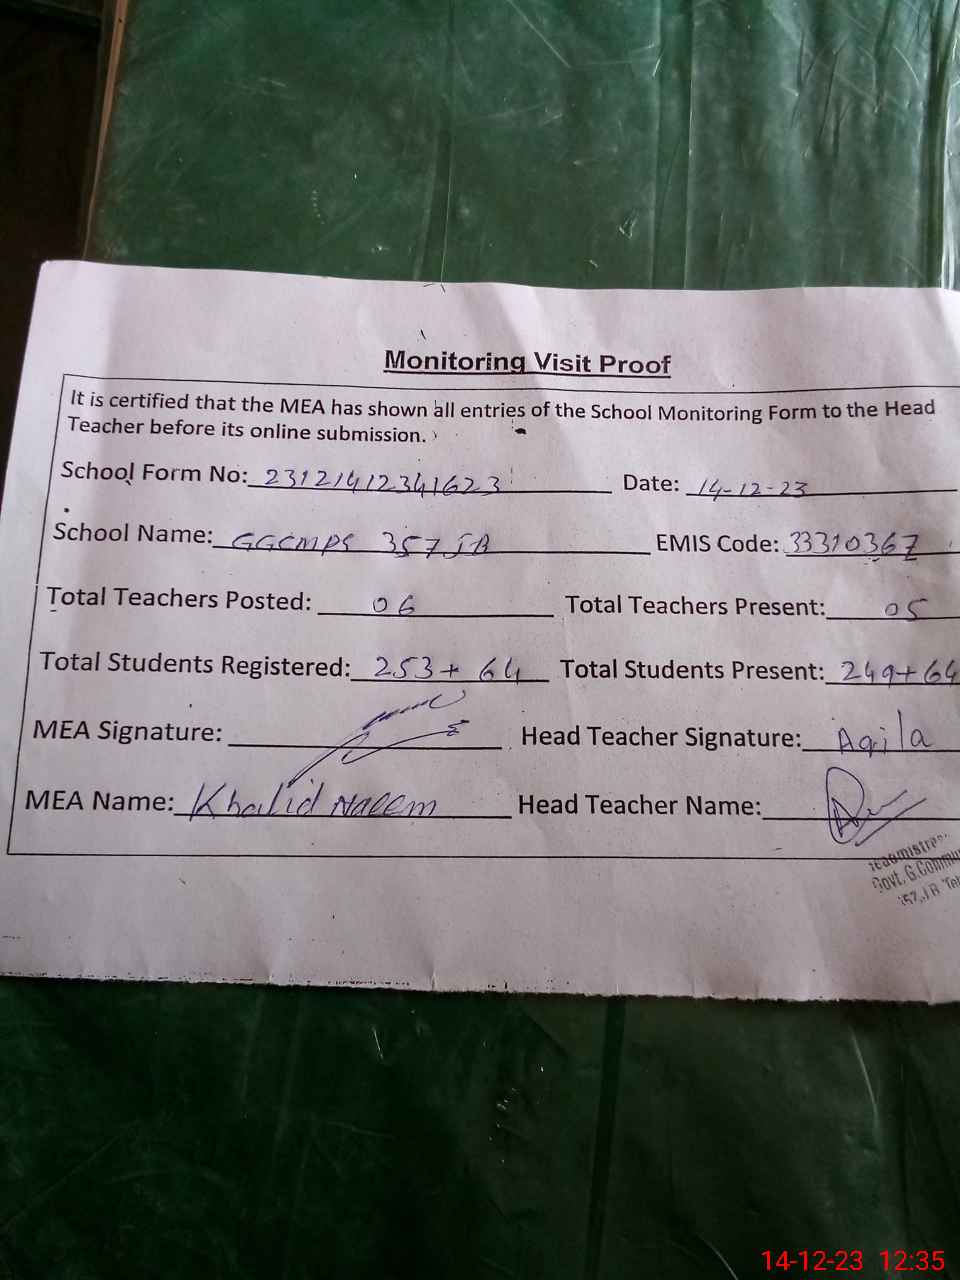 Monitoring Visit Proof
It is certified that the MEA has shown all entries of the School Monitoring Form to the Head
Teacher before its online submission.
School Form No: 23121412341623 Date: 14-12-23
School Name: GGCMPS 357 JB EMIS Code: 33310367
Total Teachers Posted: 06 Total Teachers Present: 05
Total Students Registered: 253+ 64 Total Students Present: 249+64
MEA Signature: Head Teacher Signature: Aqila
MEA Name: Khalid Naeem Head Teacher Name:
Govt. G.Commu
357 J.B Te
14-12-23 12:35